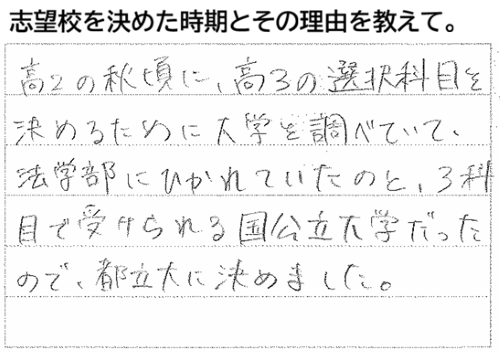 志望校を決めた時期とその理由を教えて。
高2の秋頃に、高3の選択科目を
決めるために大学を調べていて、
法学部にひかれていたのと、3科
目で受けられる国公立大学だった
ので、都立大に決めました。